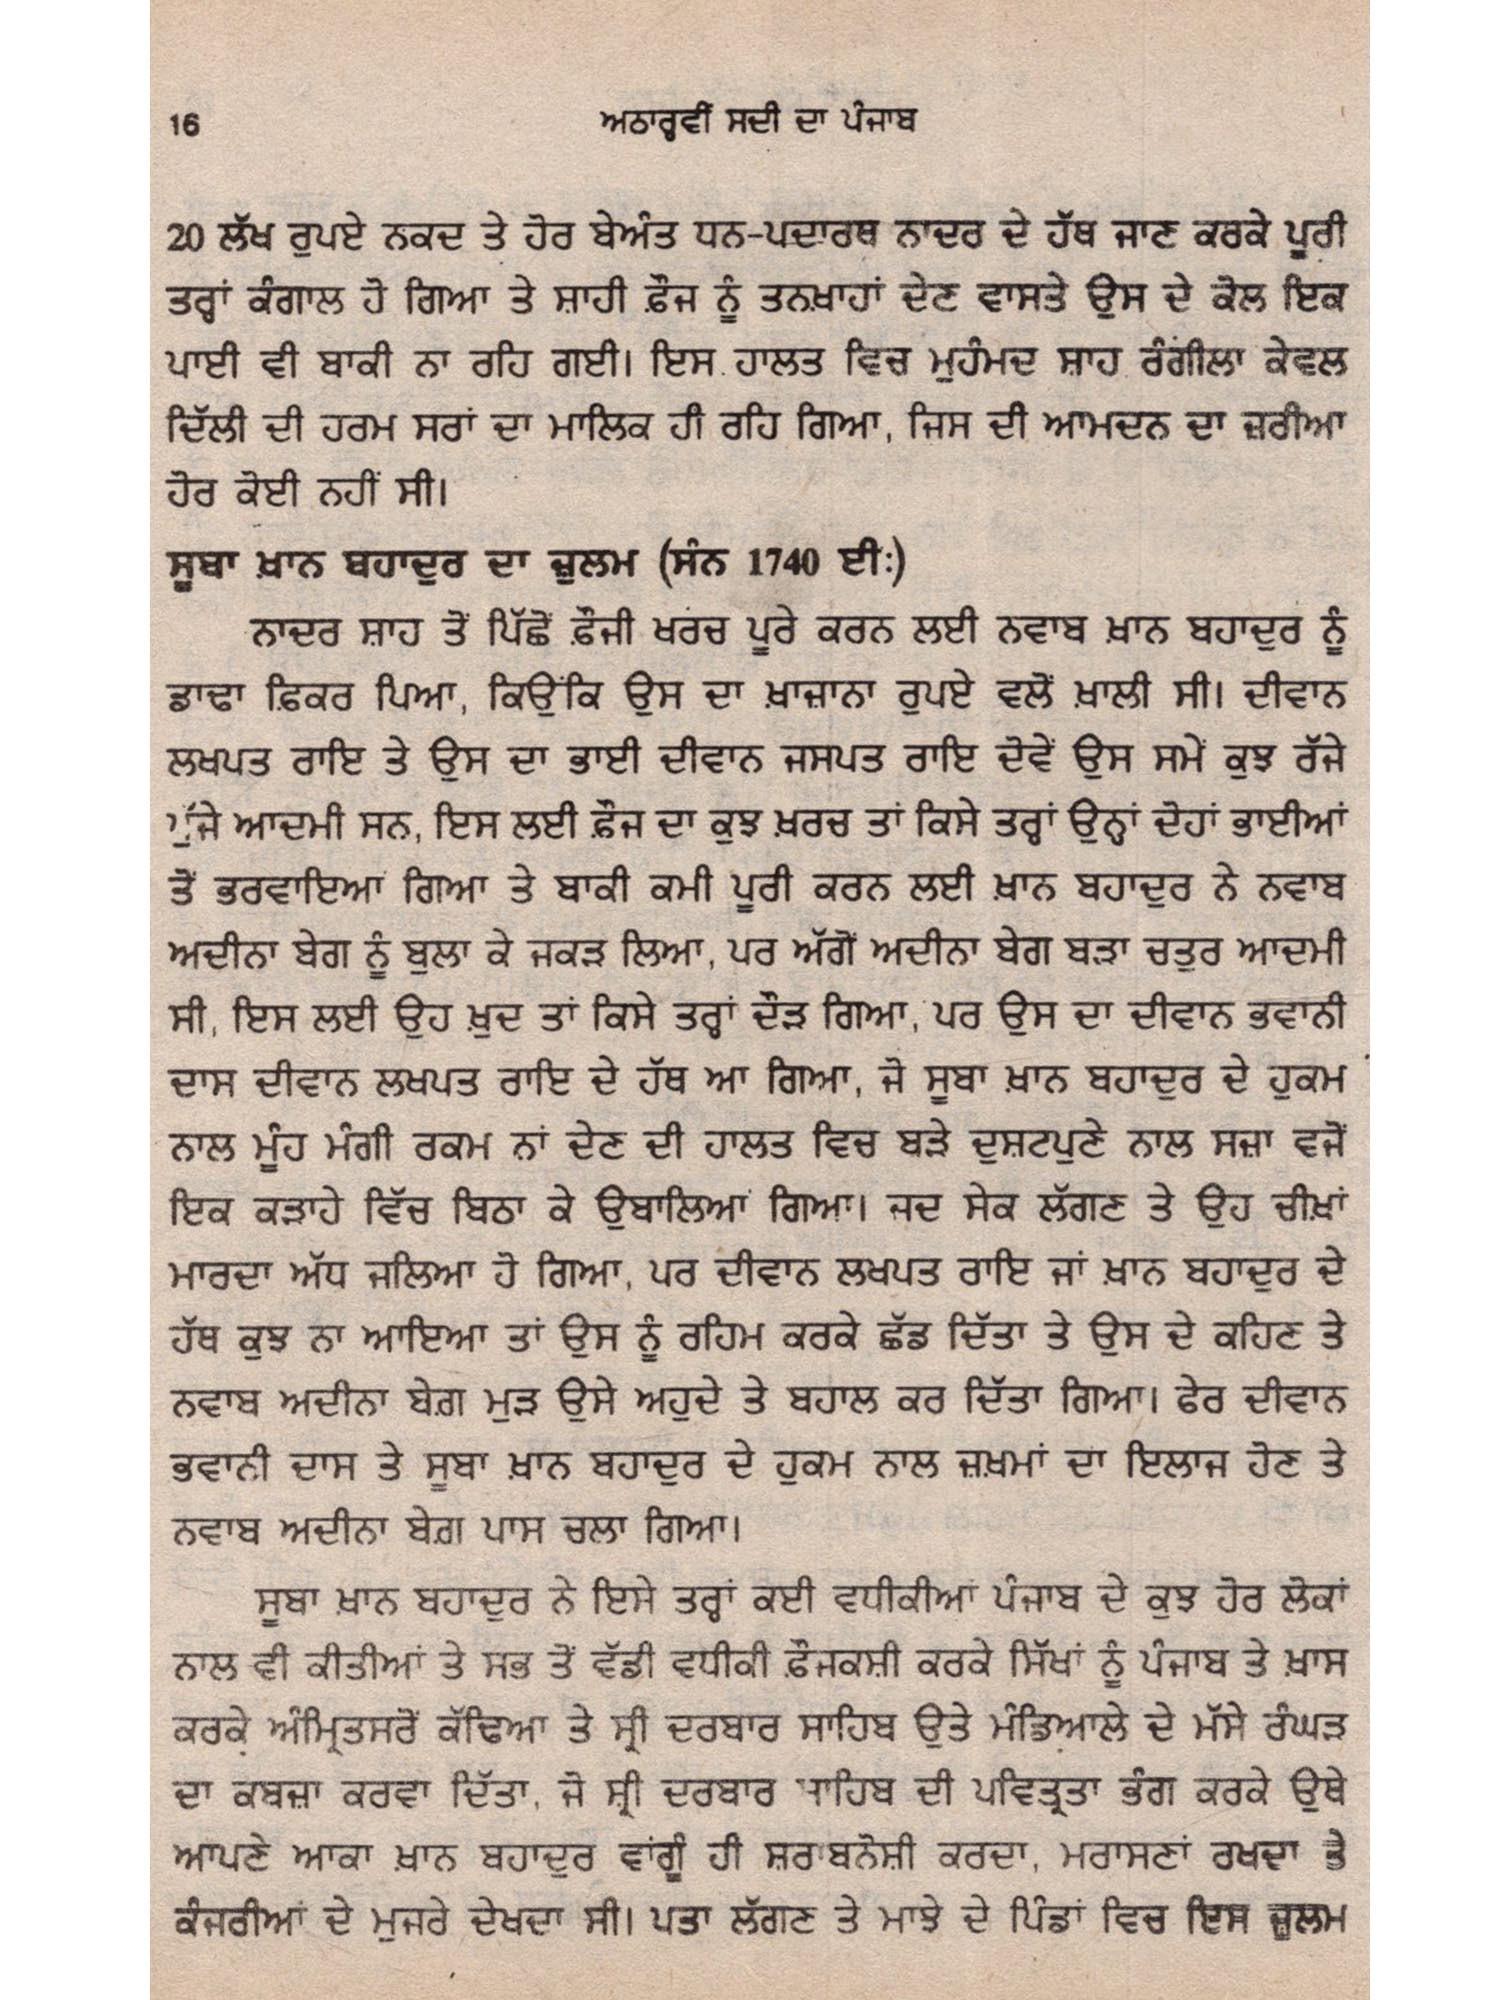 16
ਅਠਾਰ੍ਹਵੀਂ ਸਦੀ ਦਾ ਪੰਜਾਬ
20 ਲੱਖ ਰੁਪਏ ਨਕਦ ਤੇ ਹੋਰ ਬੇਅੰਤ ਧਨ-ਪਦਾਰਥ ਨਾਦਰ ਦੇ ਹੱਥ ਜਾਣ ਕਰਕੇ ਪੂਰੀ
ਤਰ੍ਹਾਂ ਕੰਗਾਲ ਹੋ ਗਿਆ ਤੇ ਸ਼ਾਹੀ ਫ਼ੌਜ ਨੂੰ ਤਨਖ਼ਾਹਾਂ ਦੇਣ ਵਾਸਤੇ ਉਸ ਦੇ ਕੋਲ ਇਕ
ਪਾਈ ਵੀ ਬਾਕੀ ਨਾ ਰਹਿ ਗਈ। ਇਸ ਹਾਲਤ ਵਿਚ ਮੁਹੰਮਦ ਸ਼ਾਹ ਰੰਗੀਲਾ ਕੇਵਲ
ਦਿੱਲੀ ਦੀ ਹਰਮ ਸਰਾਂ ਦਾ ਮਾਲਿਕ ਹੀ ਰਹਿ ਗਿਆ, ਜਿਸ ਦੀ ਆਮਦਨ ਦਾ ਜ਼ਰੀਆ
ਹੋਰ ਕੋਈ ਨਹੀਂ ਸੀ।
ਸੂਬਾ ਖ਼ਾਨ ਬਹਾਦੁਰ ਦਾ ਜ਼ੁਲਮ (ਸੰਨ 1740 ਈ:)
ਨਾਦਰ ਸ਼ਾਹ ਤੋਂ ਪਿੱਛੋਂ ਫ਼ੌਜੀ ਖਰਚ ਪੂਰੇ ਕਰਨ ਲਈ ਨਵਾਬ ਖ਼ਾਨ ਬਹਾਦੁਰ ਨੂੰ
ਡਾਢਾ ਫ਼ਿਕਰ ਪਿਆ, ਕਿਉਂਕਿ ਉਸ ਦਾ ਖ਼ਾਜ਼ਾਨਾ ਰੁਪਏ ਵਲੋਂ ਖ਼ਾਲੀ ਸੀ। ਦੀਵਾਨ
ਲਖਪਤ ਰਾਇ ਤੇ ਉਸ ਦਾ ਭਾਈ ਦੀਵਾਨ ਜਸਪਤ ਰਾਇ ਦੋਵੇਂ ਉਸ ਸਮੇਂ ਕੁਝ ਰੱਜੇ
ਪੁੱਜੇ ਆਦਮੀ ਸਨ, ਇਸ ਲਈ ਫ਼ੌਜ ਦਾ ਕੁਝ ਖ਼ਰਚ ਤਾਂ ਕਿਸੇ ਤਰ੍ਹਾਂ ਉਨ੍ਹਾਂ ਦੋਹਾਂ ਭਾਈਆਂ
ਤੋਂ ਭਰਵਾਇਆ ਗਿਆ ਤੇ ਬਾਕੀ ਕਮੀ ਪੂਰੀ ਕਰਨ ਲਈ ਖ਼ਾਨ ਬਹਾਦੁਰ ਨੇ ਨਵਾਬ
ਅਦੀਨਾ ਬੇਗ ਨੂੰ ਬੁਲਾ ਕੇ ਜਕੜ ਲਿਆ, ਪਰ ਅੱਗੋਂ ਅਦੀਨਾ ਬੇਗ ਬੜਾ ਚਤੁਰ ਆਦਮੀ
ਸੀ, ਇਸ ਲਈ ਉਹ ਖ਼ੁਦ ਤਾਂ ਕਿਸੇ ਤਰ੍ਹਾਂ ਦੌੜ ਗਿਆ, ਪਰ ਉਸ ਦਾ ਦੀਵਾਨ ਭਵਾਨੀ
ਦਾਸ ਦੀਵਾਨ ਲਖਪਤ ਰਾਇ ਦੇ ਹੱਥ ਆ ਗਿਆ, ਜੋ ਸੂਬਾ ਖ਼ਾਨ ਬਹਾਦੁਰ ਦੇ ਹੁਕਮ
ਨਾਲ ਮੂੰਹ ਮੰਗੀ ਰਕਮ ਨਾਂ ਦੇਣ ਦੀ ਹਾਲਤ ਵਿਚ ਬੜੇ ਦੁਸ਼ਟਪੁਣੇ ਨਾਲ ਸਜ਼ਾ ਵਜੋਂ
ਇਕ ਕੜਾਹੇ ਵਿੱਚ ਬਿਠਾ ਕੇ ਉਬਾਲਿਆ ਗਿਆ। ਜਦ ਸੇਕ ਲੱਗਣ ਤੇ ਉਹ ਚੀਖ਼ਾਂ
ਮਾਰਦਾ ਅੱਧ ਜਲਿਆ ਹੋ ਗਿਆ, ਪਰ ਦੀਵਾਨ ਲਖਪਤ ਰਾਇ ਜਾਂ ਖ਼ਾਨ ਬਹਾਦੁਰ ਦੇ
ਹੱਥ ਕੁਝ ਨਾ ਆਇਆ ਤਾਂ ਉਸ ਨੂੰ ਰਹਿਮ ਕਰਕੇ ਛੱਡ ਦਿੱਤਾ ਤੇ ਉਸ ਦੇ ਕਹਿਣ ਤੇ
ਨਵਾਬ ਅਦੀਨਾ ਬੇਗ਼ ਮੁੜ ਉਸੇ ਅਹੁਦੇ ਤੇ ਬਹਾਲ ਕਰ ਦਿੱਤਾ ਗਿਆ। ਫੇਰ ਦੀਵਾਨ
ਭਵਾਨੀ ਦਾਸ ਤੇ ਸੂਬਾ ਖ਼ਾਨ ਬਹਾਦੁਰ ਦੇ ਹੁਕਮ ਨਾਲ ਜ਼ਖ਼ਮਾਂ ਦਾ ਇਲਾਜ ਹੋਣ ਤੇ
ਨਵਾਬ ਅਦੀਨਾ ਬੇਗ਼ ਪਾਸ ਚਲਾ ਗਿਆ।
ਸੂਬਾ ਖ਼ਾਨ ਬਹਾਦੁਰ ਨੇ ਇਸੇ ਤਰ੍ਹਾਂ ਕਈ ਵਧੀਕੀਆਂ ਪੰਜਾਬ ਦੇ ਕੁਝ ਹੋਰ ਲੋਕਾਂ
ਨਾਲ ਵੀ ਕੀਤੀਆਂ ਤੇ ਸਭ ਤੋਂ ਵੱਡੀ ਵਧੀਕੀ ਫ਼ੌਜਕਸ਼ੀ ਕਰਕੇ ਸਿੱਖਾਂ ਨੂੰ ਪੰਜਾਬ ਤੇ ਖ਼ਾਸ
ਕਰਕੇ ਅੰਮ੍ਰਿਤਸਰੋਂ ਕੱਢਿਆ ਤੇ ਸ੍ਰੀ ਦਰਬਾਰ ਸਾਹਿਬ ਉਤੇ ਮੰਡਿਆਲੇ ਦੇ ਮੱਸੇ ਰੰਘੜ
ਦਾ ਕਬਜ਼ਾ ਕਰਵਾ ਦਿੱਤਾ, ਜੋ ਸ਼੍ਰੀ ਦਰਬਾਰ ਸਾਹਿਬ ਦੀ ਪਵਿਤ੍ਰਤਾ ਭੰਗ ਕਰਕੇ ਉਥੇ
ਆਪਣੇ ਆਕਾ ਖ਼ਾਨ ਬਹਾਦੁਰ ਵਾਂਗੂੰ ਹੀ ਸ਼ਰਾਬਨੋਸ਼ੀ ਕਰਦਾ, ਮਰਾਸਣਾਂ ਰਖਦਾ ਤੇ
ਕੰਜਰੀਆਂ ਦੇ ਮੁਜਰੇ ਦੇਖਦਾ ਸੀ। ਪਤਾ ਲੱਗਣ ਤੇ ਮਾਝੇ ਦੇ ਪਿੰਡਾਂ ਵਿਚ ਇਸ ਜ਼ੁਲਮ